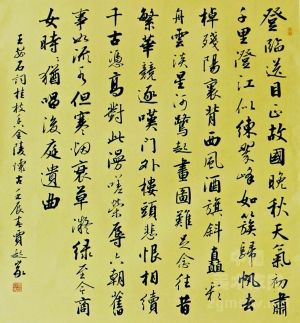 登臨送目正故國晚秋天氣初肅
千里澄江似練翠峰如簇歸帆去
棹殘陽裏背西風酒旗斜矗彩
舟雲淡星河鷺起畫圖難足念往昔
繁華競逐嘆門外樓頭悲恨相續
千古憑高對此漫嗟榮辱六朝舊
事如流水但寒烟衰草凝綠至今商
女時時猶唱後庭遺曲
王安石詞桂枝香金陵懷古壬辰春賈起家